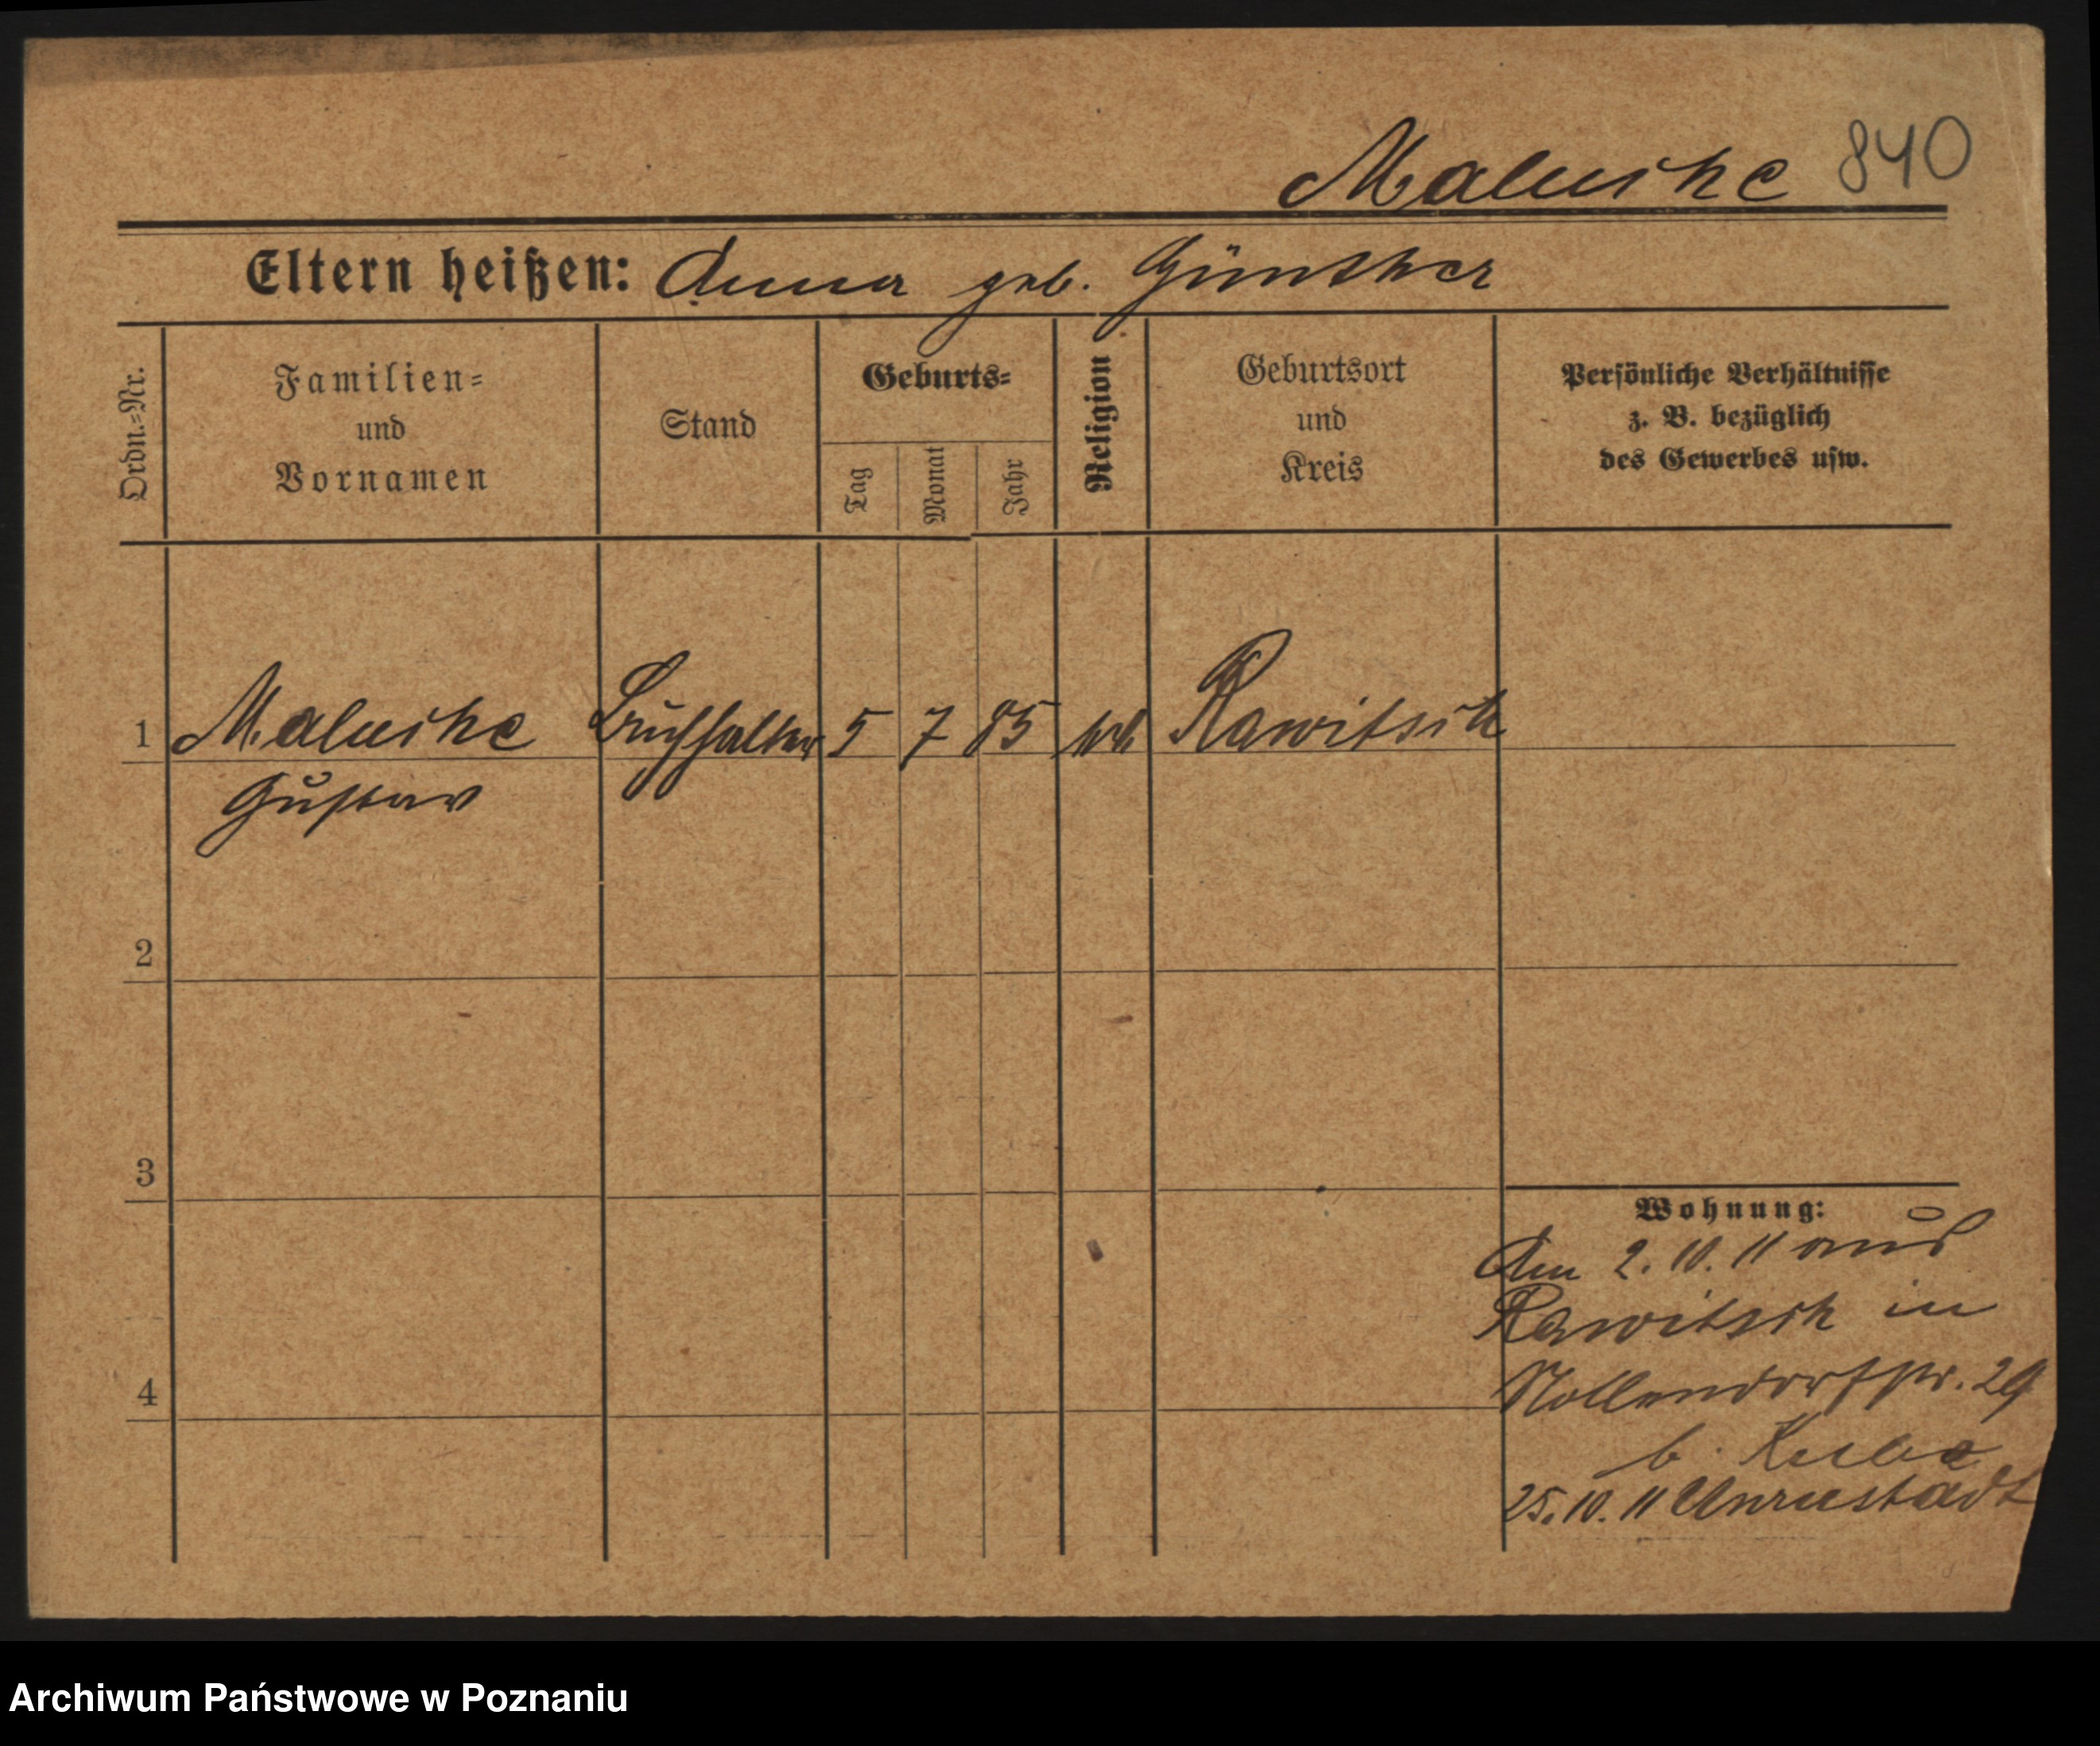 Maluske 840
Eltern heißen: Anna geb. Günther
Ordn.=Nr.
Familien=
und
Vornamen
Stand
Geburts=
Tag
Monat
Jahr
Religion
Geburtsort
und
Kreis
Persönliche Verhältnisse
z. B. bezüglich
des Gewerbes usw.
1 Maluske Buchhalter 5 7 85 Rawitsch
Gustav
2
3
4
Wohnung:
Am 2. 10. 11 aus
Rawitsch in
Nollendorfstr. 29
b.
25. 10. 11 Unruhstadt
Archiwum Państwowe w Poznaniu